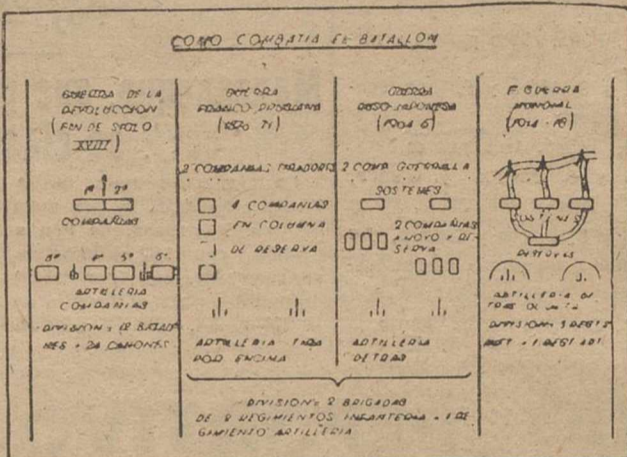 COMO COMBATIA EL BATALLON
GUERRA DE LA
REVOLUCCION
(FIN DE SIGLO
XVIII)
1ª 2ª
COMPAÑIAS
3ª 4ª 5ª 6ª
ARTILLERIA
COMPANIAS
DIVISION = 12 BATALLO
NES + 24 CAÑONES
GUERRA
FRANCO PRUSIANA
(1870 71)
2 COMPANIAS TIRADORES
4 COMPANIAS
EN COLUMNA
DE RESERVA
ARTILLERIA TIRA
POR ENCIMA
GUERRA
RUSO-JAPONESA
(1904 5)
2 COMP GUERRILLA
SOSTENES
2 COMPAÑIAS
APOYO Y RE-
SERVA
ARTILLERIA
DETRAS
Iª GUERRA
MUNDIAL
(1914-18)
ARTILLERIA DE
TRAS
DIVISION=
DIVISION = 2 BRIGADAS
DE 2 REGIMIENTOS INFANTERIA + 1 RE
GIMIENTO ARTILLERIA